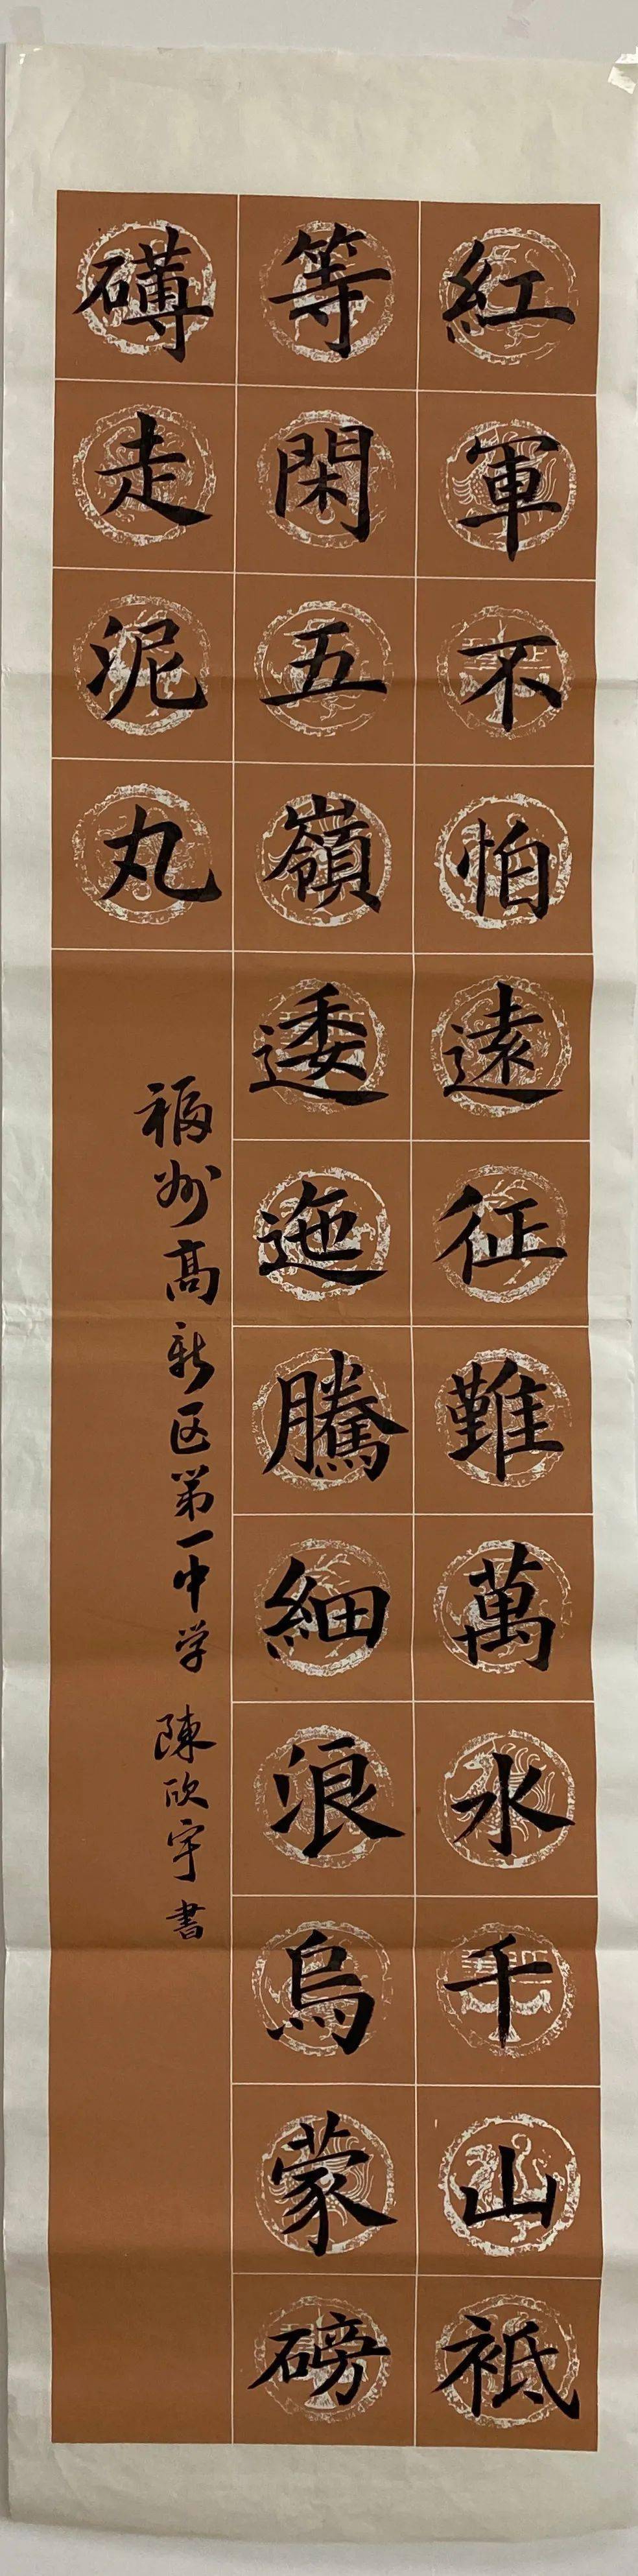 紅軍不怕遠征難萬水千山祗
等閑五嶺逶迤騰細浪烏蒙磅
礴走泥丸
福州高新区第一中学 陳欣宇書